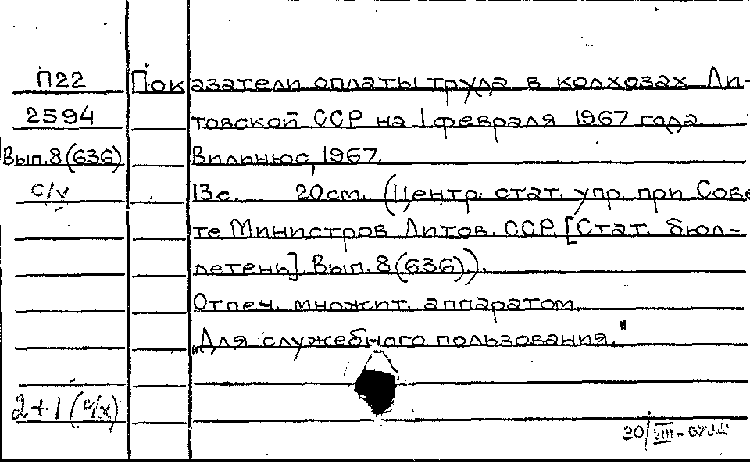 П22 Показатели оплаты труда в колхозах Ли-
2594 товской ССР на 1 февраля 1967 года.
Вып.8(636) Вильнюс, 1967.
с/v 13с. 20см. (Центр. стат. упр. при Сове-
те Министров Литов. ССР. [Стат. бюл-
летень]. Вып.8(636)).
Отпеч. множит. аппаратом.
"Для служебного пользования."
2+1
30/VIII-67